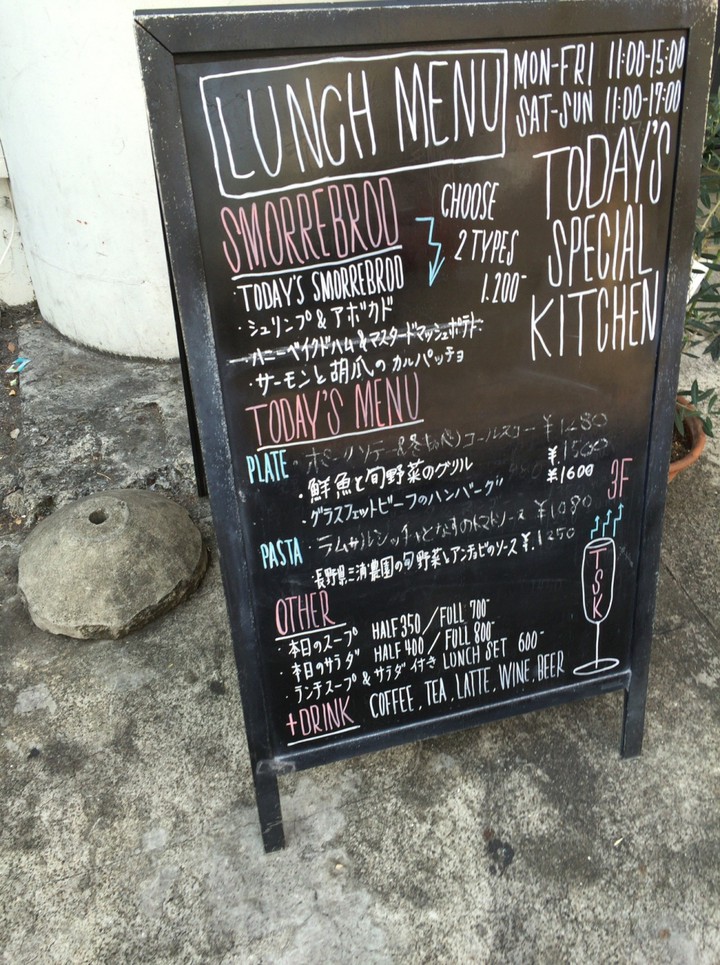 LUNCH MENU
MON-FRI 11:00-15:00
SAT-SUN 11:00-17:00
TODAY'S
SPECIAL
KITCHEN
SMORREBROD
CHOOSE
2 TYPES
1.200-
TODAY'S SMORREBROD
・シュリンプ&アボカド
・ハニーベイクドハム&マスタードマッシュポテト
・サーモンと胡瓜のカルパッチョ
TODAY'S MENU
PLATE
ソテー& ¥1280
・鮮魚と旬野菜のグリル ¥1500
・グラスフェットビーフのハンバーグ ¥1600
PASTA ・ラムサルシッチャとなすのトマトソース ¥1080
・長野県三浦農園の旬野菜とアンチョビのソース ¥1250
3F
TSK
OTHER
・本日のスープ HALF 350/FULL 700-
・本日のサラダ HALF 400/FULL 800-
・ランチスープ&サラダ付き LUNCH SET 600-
+DRINK COFFEE, TEA, LATTE, WINE, BEER